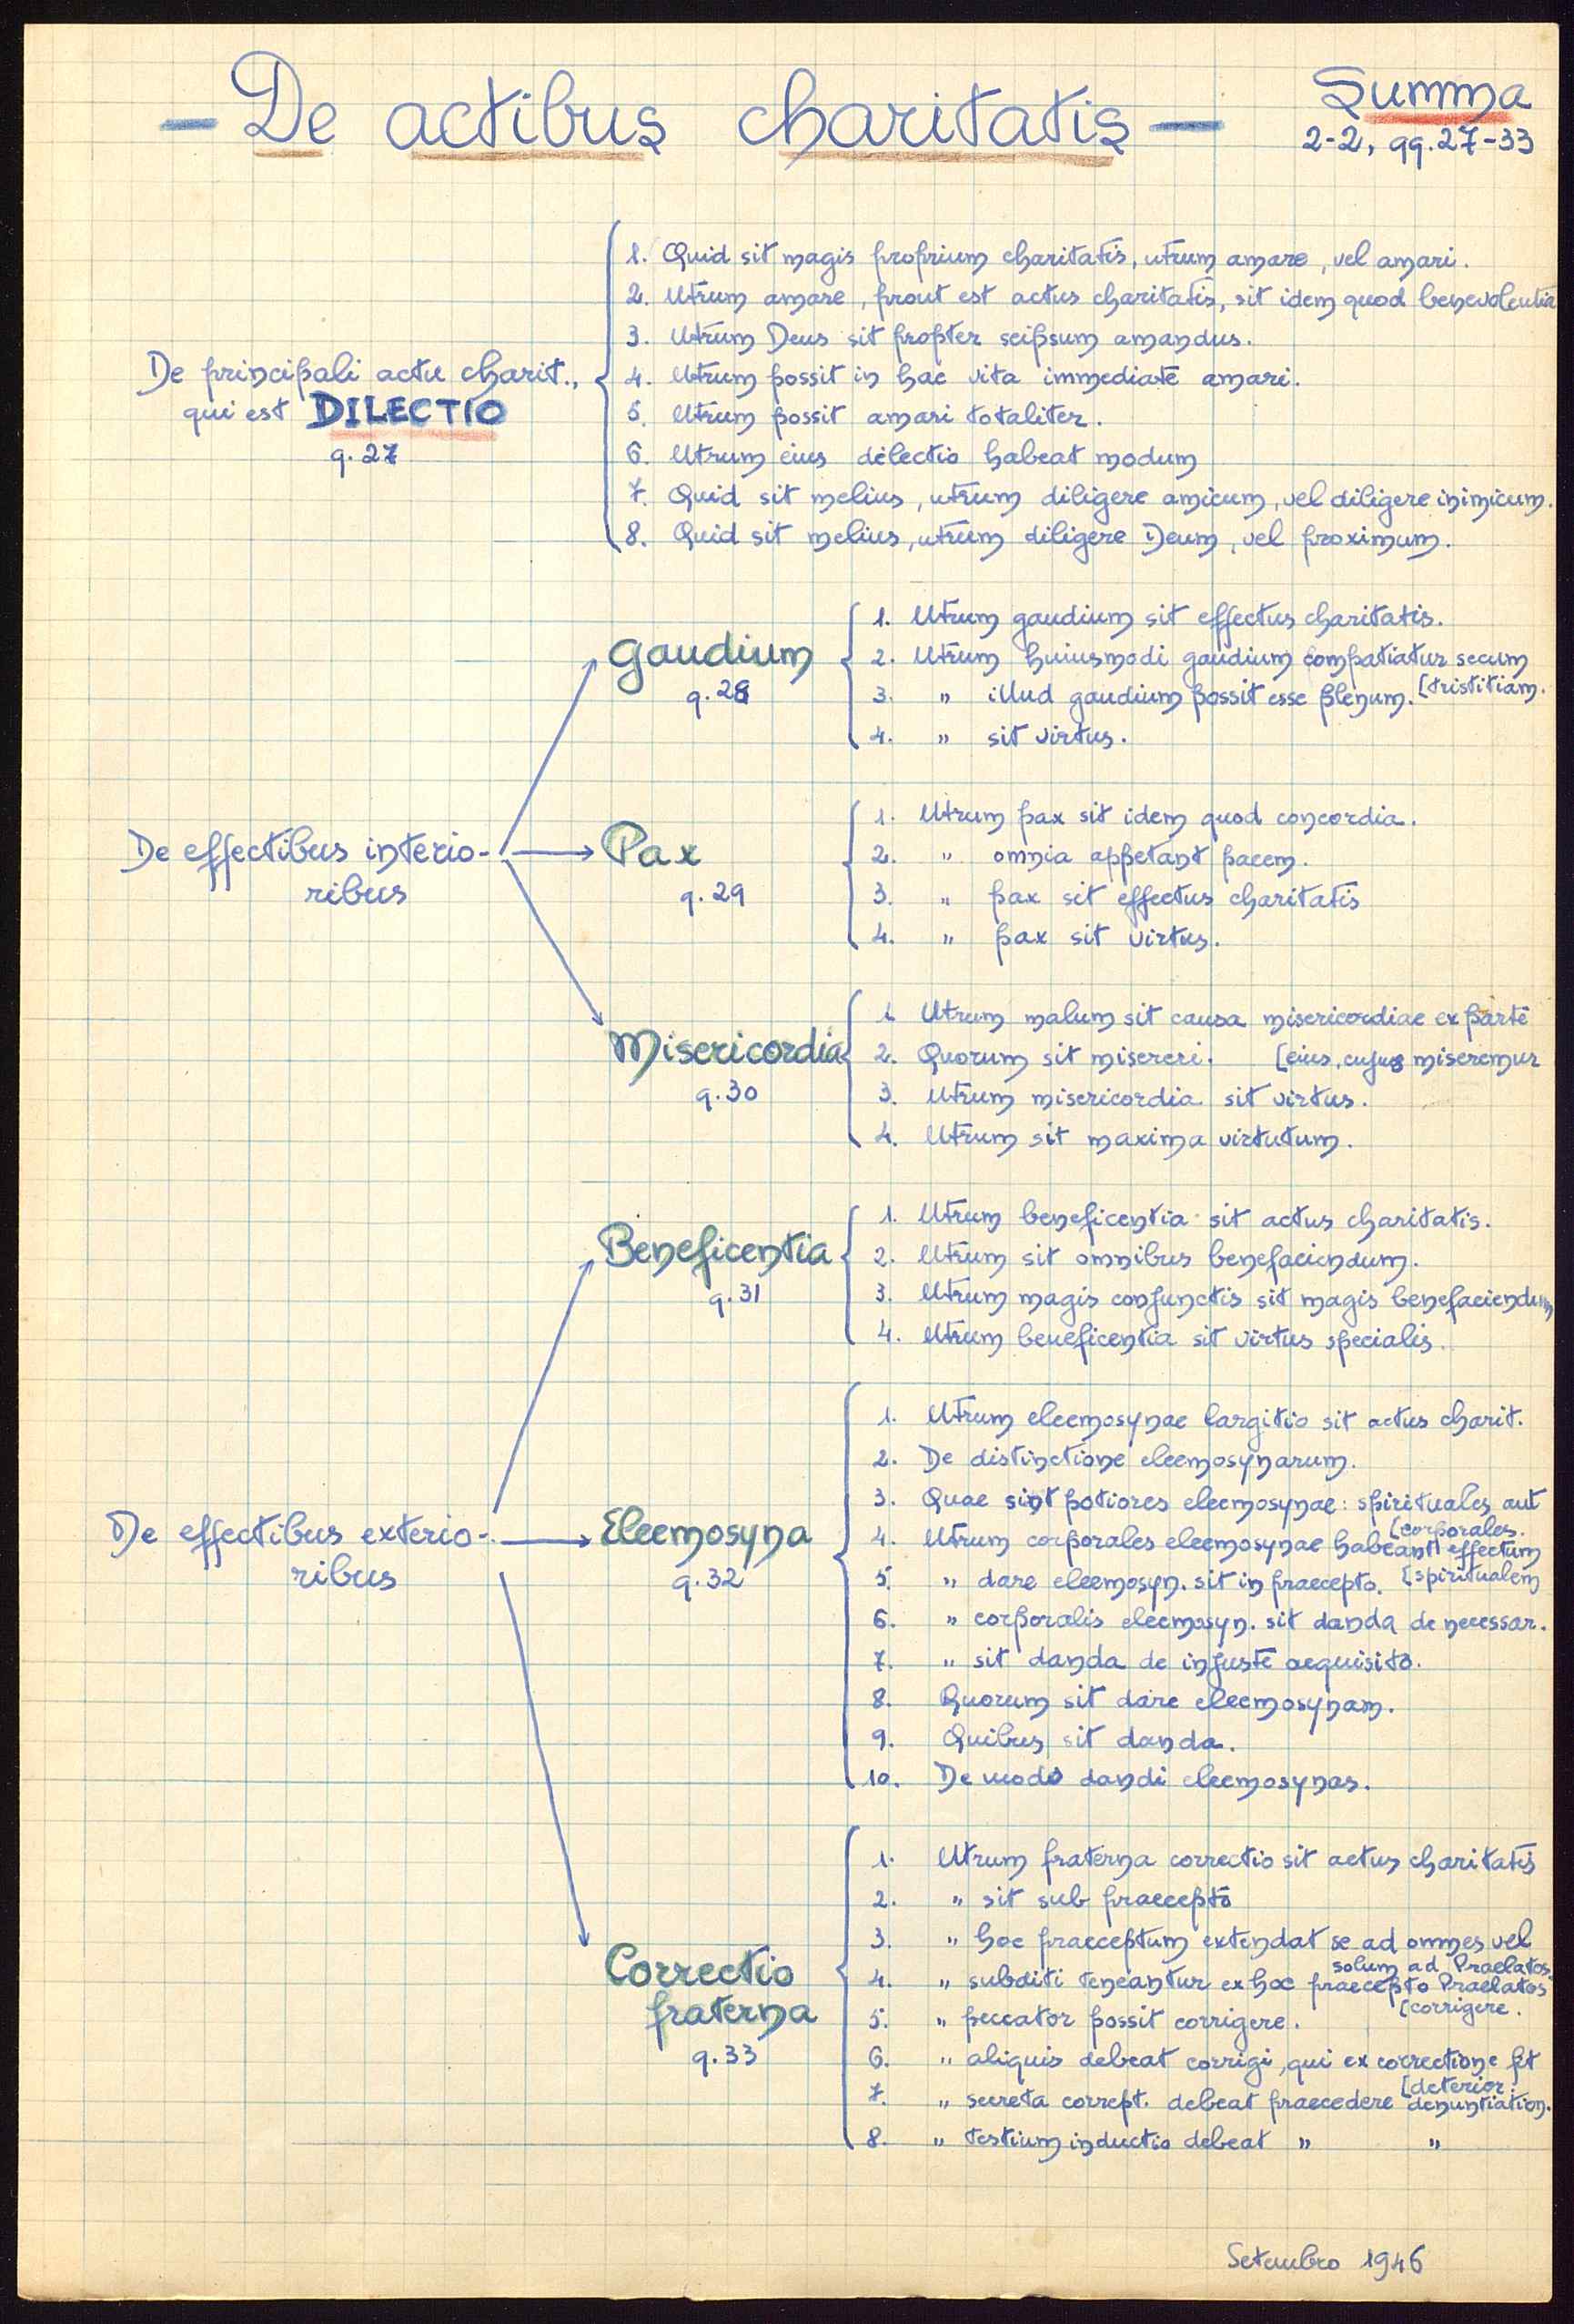 - De actibus charitatis -
Summa
2-2, qq. 27-33
De principali actu charit.,
qui est DILECTIO
q. 27
1. Quid sit magis proprium charitatis, utrum amare, vel amari.
2. Utrum amare, prout est actus charitatis, sit idem quod benevolentia
3. Utrum Deus sit propter seipsum amandus.
4. Utrum possit in hac vita immediate amari.
5. Utrum possit amari totaliter.
6. Utrum eius dilectio habeat modum
7. Quid sit melius, utrum diligere amicum, vel diligere inimicum.
8. Quid sit melius, utrum diligere Deum, vel proximum.
De effectibus interio-
ribus
Gaudium
q. 28
1. Utrum gaudium sit effectus charitatis.
2. Utrum huiusmodi gaudium compatiatur secum
[tristitiam.
3. " illud gaudium possit esse plenum.
4. " sit virtus.
Pax
q. 29
1. Utrum pax sit idem quod concordia.
2. " omnia appetant pacem.
3. " pax sit effectus charitatis
4. " pax sit virtus.
Misericordia
q. 30
1 Utrum malum sit causa misericordiae ex parte
[eius, cujus miseremur
2. Quorum sit misereri.
3. Utrum misericordia sit virtus.
4. Utrum sit maxima virtutum.
De effectibus exterio-
ribus
Beneficentia
q. 31
1. Utrum beneficentia sit actus charitatis.
2. Utrum sit omnibus benefaciendum.
3. Utrum magis conjunctis sit magis benefaciendum
4. Utrum beneficentia sit virtus specialis.
Eleemosyna
q. 32
1. Utrum eleemosynae largitio sit actus charit.
2. De distinctione eleemosynarum.
3. Quae sint potiores eleemosynae: spirituales aut
[corporales.
4. Utrum corporales eleemosynae habeant effectum
[spiritualem
5. " dare eleemosyn. sit in praecepto.
6. " corporalis eleemosyn. sit danda de necessar.
7. " sit danda de injuste acquisito.
8. Quorum sit dare eleemosynam.
9. Quibus sit danda.
10. De modo dandi eleemosynas.
Correctio
fraterna
q. 33
1. Utrum fraterna correctio sit actus charitatis
2. " sit sub praecepto
3. " hoc praeceptum extendat se ad omnes vel
solum ad Praelatos.
4. " subditi teneantur ex hoc praecepto Praelatos
[corrigere.
5. " peccator possit corrigere.
6. " aliquis debeat corrigi, qui ex correctione fit
[deterior.
7. " secreta corrept. debeat praecedere denuntiation.
8. " testium inductio debeat " "
Setembro 1946